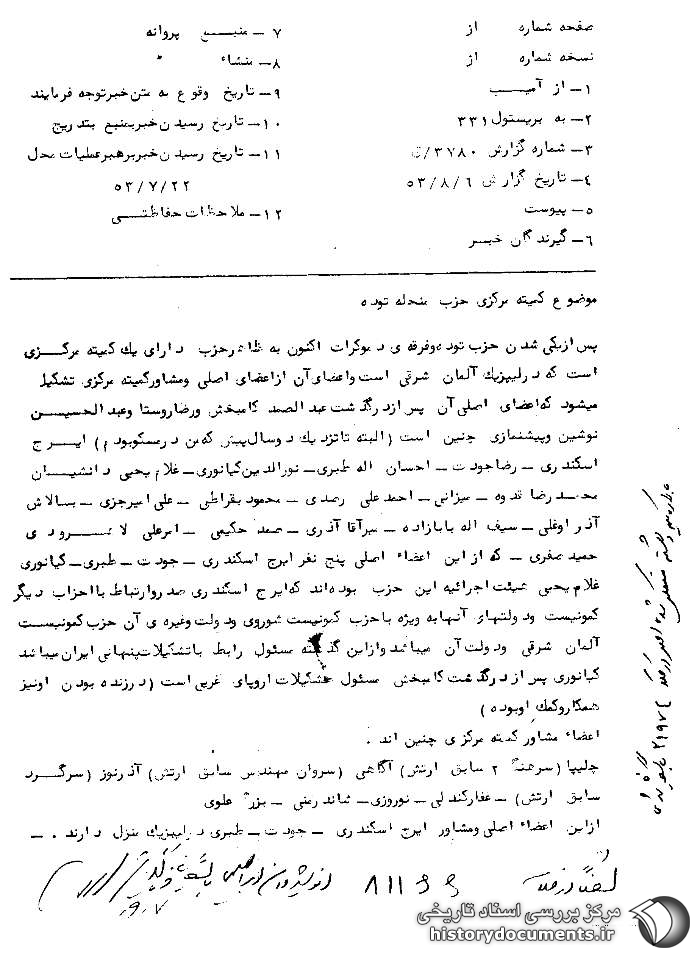 صفحه شماره از
نسخه شماره از
۱ـ از آمیب
۲ـ به بریستول ۳۳۱
۳ـ شماره گزارش ۳۷۸۰/ق
۴ـ تاریخ گزارش ۵۳/۸/۶
۵ـ پیوست
۶ـ گیرندگان خبر
۷ـ منبع پروانه
۸ـ منشاء "
۹ـ تاریخ وقوع به متن خبر توجه فرمایند
۱۰ـ تاریخ رسیدن خبر بمنبع بتدریج
۱۱ـ تاریخ رسیدن خبر برهبر عملیات محل
۵۳/۷/۲۲
۱۲ـ ملاحظات حفاظتی
موضوع کمیته مرکزی حزب منحله توده
پس از یکی شدن حزب توده و فرقه ی دموکرات اکنون به ظاهر حزب دارای یک کمیته مرکزی
است که در لیپزیک آلمان شرقی است و اعضای آن از اعضای اصلی و مشاور کمیته مرکزی تشکیل
میشود که اعضای اصلی آن پس از درگذشت عبدالصمد کامبخش و رضا روستا و عبدالحسین
نوشین و پیشنمازی چنین است (البته تا نزدیک دو سال پیش که من در مسکو بودم) ایرج
اسکندری ـ رضا جودت ـ احسان اله طبری ـ نورالدین کیانوری ـ غلام یحیی دانشیان
محمد رضا قدوه ـ میزانی ـ احمد علی رصدی ـ محمود بقراطی ـ علی امیرخیزی ـ بسالاش
آذراوغلی ـ سیف اله بابازاده ـ میرآقا آذری ـ صمد حکیمی ـ امیرعلی لاهرودی
حمید صفری ـ که از این اعضاء اصلی پنج نفر ایرج اسکندری ـ جودت ـ طبری ـ کیانوری
غلام یحیی هیئت اجرائیه این حزب بوده اند که ایرج اسکندری صدر و ارتباط با احزاب دیگر
کمونیست و دولتهای آنها به ویژه با حزب کمونیست شوروی و دولت وغیره ی آن حزب کمونیست
آلمان شرقی و دولت آن میباشد و از این گذشته مسئول رابط با تشکیلات پنهانی ایران میباشد
کیانوری پس از درگذشت کامبخش مسئول تشکیلات اروپای غربی است (در زنده بودن او نیز
همکار و کمک او بوده)
اعضاء مشاور کمته مرکزی چنین اند .
چلیپا (سرهنگ ۲ سابق ارتش) آگاهی (سروان مهندس سابق ارتش) آذرنور (سرگرد
سابق ارتش) ـ غفارکندلی ـ نوروزی ـ شاندرمنی ـ بزرگ علوی
از این اعضاء اصلی و مشاور ایرج اسکندری ـ جودت ـ طبری در لیپزیک منزل دارند . ـ
۸۱۱۶۶
مرکز بررسی اسناد تاریخی
historydocuments.ir